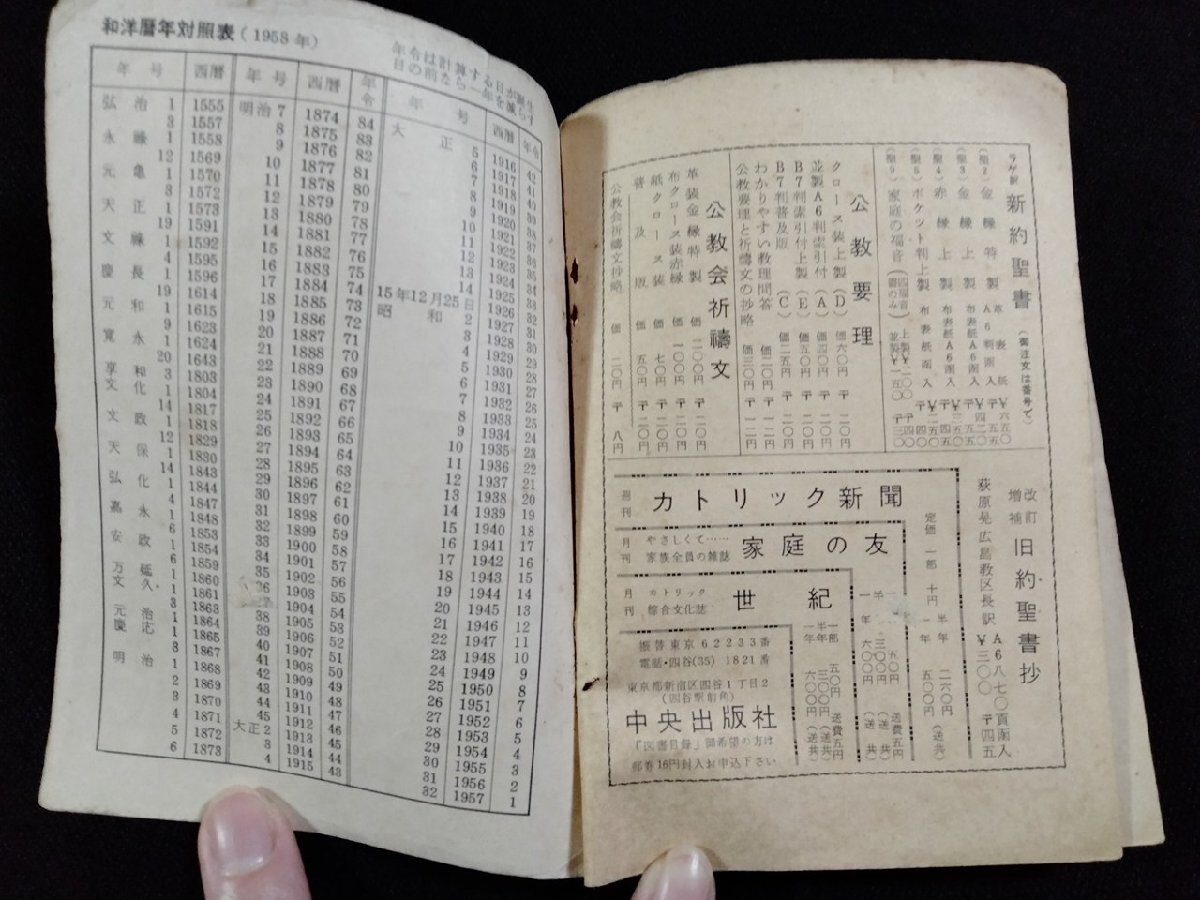 和洋暦年対照表(1958年)
年令は計算する日が誕生
日の前なら一年を減らす
年号 西暦 年号 西暦 年令 年号 西暦 年令
弘治 1 1555
3 1557
永禄 1 1558
12 1569
元亀 1 1570
3 1572
天正 1 1573
19 1591
文禄 1 1592
4 1595
慶長 1 1596
19 1614
元和 1 1615
9 1623
寛永 1 1624
20 1643
享和 3 1803
文化 1 1804
14 1817
文政 1 1818
12 1829
天保 1 1830
14 1843
弘化 1 1844
4 1847
嘉永 1 1848
6 1853
安政 1 1854
6 1859
万延 1 1860
文久 1 1861
3 1863
元治 1 1864
慶応 1 1865
3 1867
明治 1 1868
2 1869
3 1870
4 1871
5 1872
6 1873
明治7 1874 84
8 1875 83
9 1876 82
10 1877 81
11 1878 80
12 1879 79
13 1880 78
14 1881 77
15 1882 76
16 1883 75
17 1884 74
18 1885 73
19 1886 72
20 1887 71
21 1888 70
22 1889 69
23 1890 68
24 1891 67
25 1892 66
26 1893 65
27 1894 64
28 1895 63
29 1896 62
30 1897 61
31 1898 60
32 1899 59
33 1900 58
34 1901 57
35 1902 56
36 1903 55
1904 54
38 1905 53
39 1906 52
40 1907 51
41 1908 50
42 1909 49
43 1910 48
44 1911 47
45 1912 46
大正2 1913 45
3 1914 44
4 1915 43
大正 5 1916 42
6 1917 41
7 1918 40
8 1919 39
9 1920 38
10 1921 37
11 1922 36
12 1923 35
13 1924 34
14 1925 33
15年12月25日 1926 32
昭和 2 1927 31
3 1928 30
4 1929 29
5 1930 28
6 1931 27
7 1932 26
8 1933 25
9 1934 24
10 1935 23
11 1936 22
12 1937 21
13 1938 20
14 1939 19
15 1940 18
16 1941 17
17 1942 16
18 1943 15
19 1944 14
20 1945 13
21 1946 12
22 1947 11
23 1948 10
24 1949 9
25 1950 8
26 1951 7
27 1952 6
28 1953 5
29 1954 4
30 1955 3
31 1956 2
32 1957 1
ラゲ訳 新約聖書 (御注文は番号で)
(聖2) 金縁特製 革表紙 ¥六五〇
(聖3) 金縁上製 A6判函入
(聖4) 赤縁上製 布表紙A6函入
(聖5) ポケット判上製 布表紙A6函入
(聖9) 家庭の福音
公教要理
クロース装上製(D) 価六〇円 〒二〇円
並製A6判索引付(A) 価四〇円 〒二〇円
B7判索引付上製(E) 価五〇円 〒二〇円
B7判普及版(C) 価二五円 〒二〇円
わかりやすい教理問答 価二〇円 〒一二円
公教要理と祈禱文の抄略 価三〇円 〒一二円
公教会祈禱文
革装金縁特製 価二〇〇円 〒二〇円
布クロース装赤縁 価一〇〇円 〒二〇円
紙クロース装 価七〇円 〒二〇円
普及版 価五〇円 〒二〇円
公教会祈禱文抄略 価二〇円 〒八円
改訂増補 旧約聖書抄
荻原晃広島教区長訳 A6八七〇頁函入
¥三〇〇 〒四五
週刊 カトリック新聞
定価 一部 十円
半年 二六〇円
一年 五〇〇円 (送共)
月刊 やさしくて……家族全員の雑誌 家庭の友
半年 三〇〇円 (送共)
一年 六〇〇円 (送共)
月刊 カトリック綜合文化誌 世紀
一部 五〇円 送費五円
半年 三〇〇円 (送共)
一年 六〇〇円 (送共)
振替東京62233番
電話・四谷(35)1821番
東京都新宿区四谷1丁目2
(四谷駅前角)
中央出版社
「図書目録」御希望の方は
郵券16円封入お申込下さい